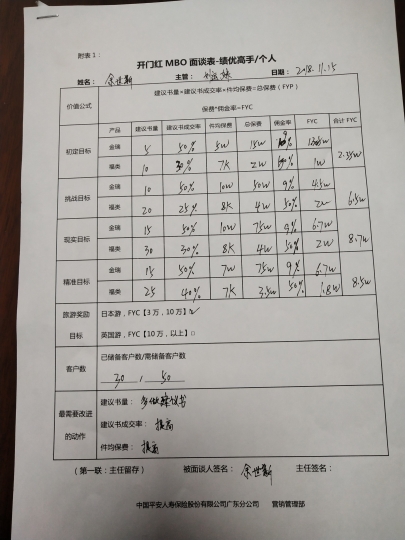 附表1：
开门红 MBO 面谈表-绩优高手/个人
姓名： 余世新 主管： 日期： 2018.11.15
价值公式 建议书量×建议书成交率×件均保费=总保费（FYP）
保费*佣金率=FYC
产品 建议书量 建议书成交率 件均保费 总保费 佣金率 FYC 合计 FYC
初定目标 金瑞 5 50% 5w 15w 9% 2.35w
福类 10 30% 7K 2w 50% 1w
挑战目标 金瑞 10 50% 10w 50w 9% 4.5w 6.5w
福类 20 25% 8K 4w 50% 2w
现实目标 金瑞 15 50% 10w 75w 9% 6.7w 8.7w
福类 30 30% 8K 4w 50% 2w
精准目标 金瑞 15 50% 7w 75w 9% 6.7w 8.5w
福类 25 40% 7K 3.5w 50% 1.8w
旅游奖励 日本游，FYC【3万，10万】☑
目标 英国游，FYC【10万，以上】□
客户数 已储备客户数/需储备客户数
30 / 50
最需要改进 建议书量： 多做建议书
的动作 建议书成交率： 提高
件均保费： 提高
（第一联：主任留存） 被面谈人签名： 余世新 主任签名：
中国平安人寿保险股份有限公司广东分公司 营销管理部